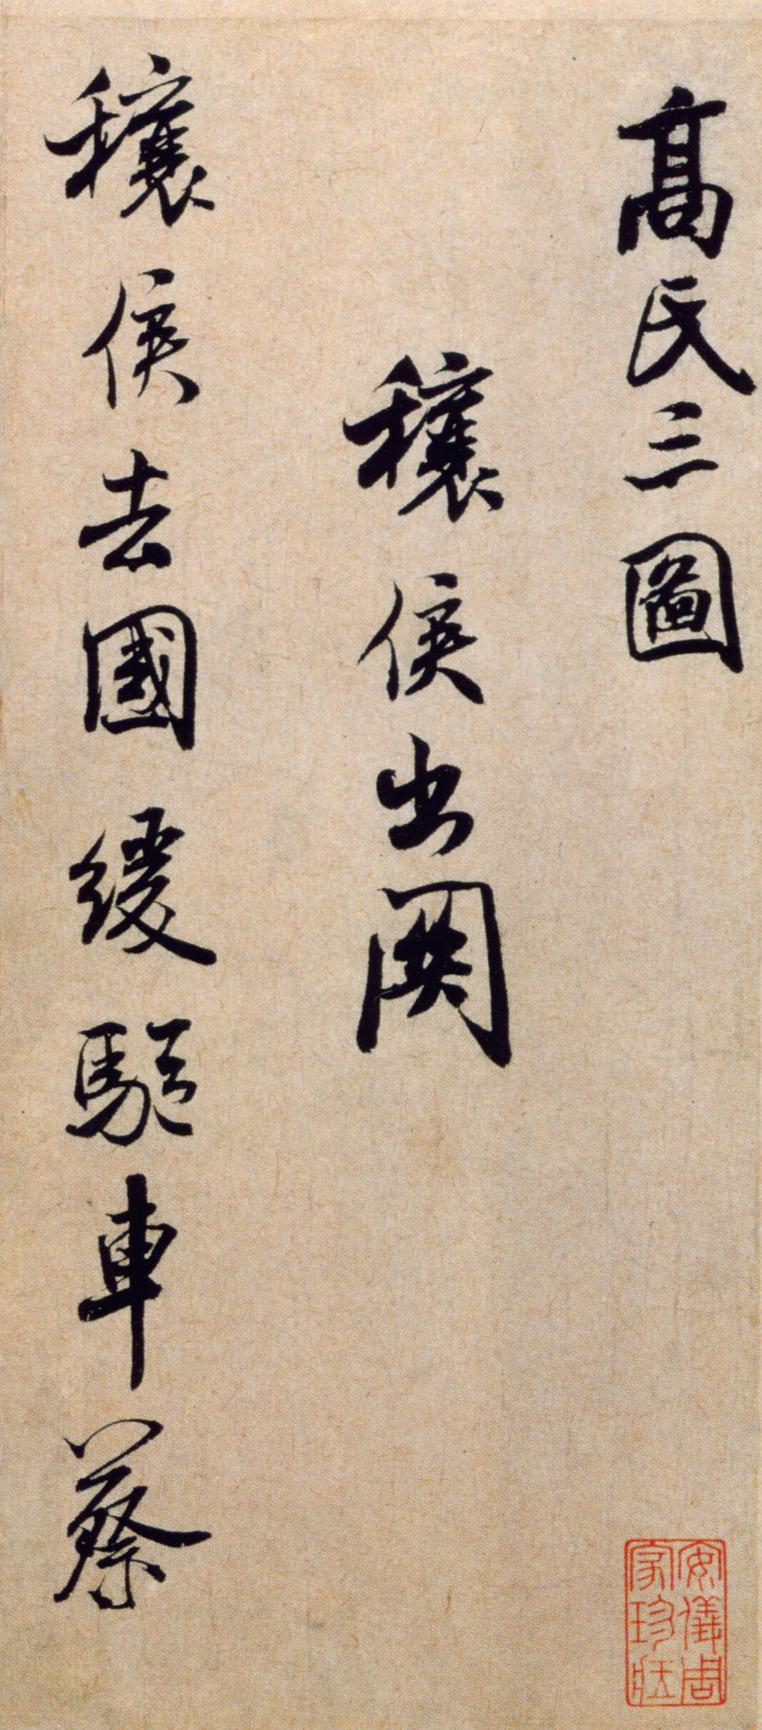 高氏三圖
穰侯出關
穰侯去國緩驅車蔡
安儀周
家珍藏